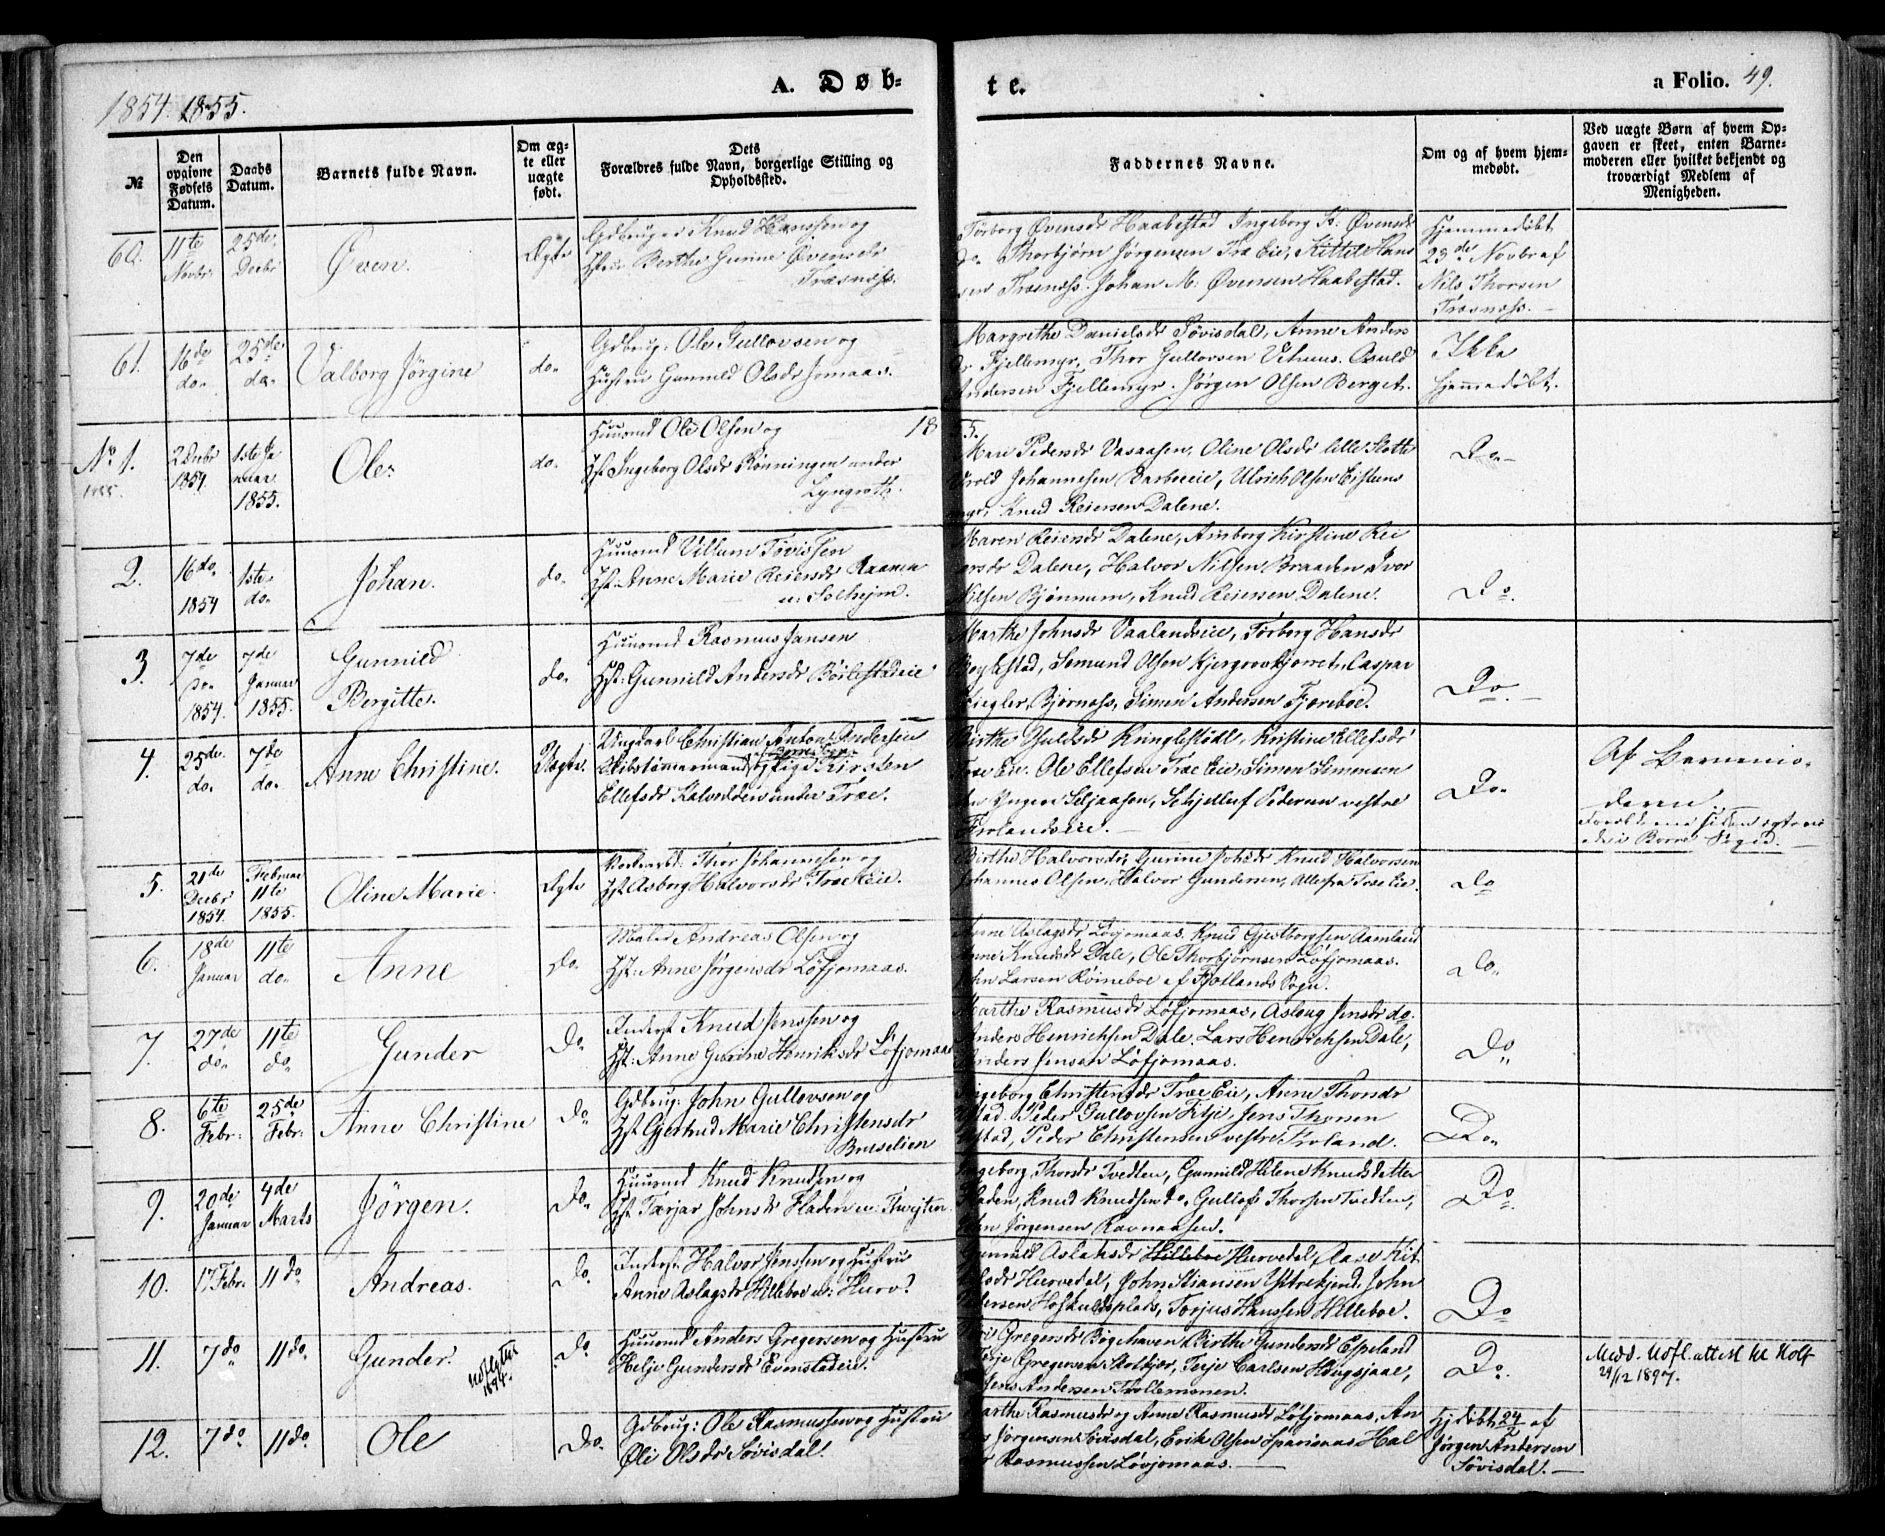 1854. 1855.
A. Døb-
te.
a Folio. 49.
№
Den opgivne Fødsels Datum.
Daabs Datum.
Barnets fulde Navn.
Om ægte eller uægte født.
Dets Forældres fulde Navn, borgerlige Stilling og Opholdssted.
Faddernes Navne.
Om og af hvem hjemmedøbt.
Ved uægte Børn af hvem Opgaven er skeet, enten Barnemoderen eller hvilket bekjendt og troværdigt Medlem af Menigheden.
60. 11te Novbr. 25de Decbr Øven. Ægte
Gdbruger Knud Hanssen og
Hstru Berthe Gurine Øvensdr
Træsnæss.
Torborg Øvensdr Haabestad Ingeborg K. Øvensdr
do. Thorbjørn Jørgensen Træ Eie, Kittil Hans
sen Træsnæss. Johan M. Øvensen Haabestad.
Hjemmedøbt
23de Novbr af
Nils Thorsen
Træsnæss.
61. 16de do. 25de do. Valborg Jørgine do.
Gdbrug: Ole Gullovsen og
Hustru Gunnild Olsdr Jomaas.
Margrethe Danielsdr Søvisdal, Anne Anders
dr Fjellemyr, Thor Gullovsen Vehuus. Osuld
Andersen Fjellemyr. Jørgen Olsen Berget.
Ikke
hjemmedøbt.
1855.
No 1. 2 Decbr 1854. 1ste Januar 1855. Ole. do.
Huusmd Ole Olsen og
Hst: Ingeborg Olsdr Rønningen under
Lyngroth.
Mari Pedersdr Vasaasen, Oline Olsdr lille Slotte
Johannesen Ulrich Olsen
Knud Reiersen Dalene.
Do
2. 16 do. 1854 1ste do. Johan. do.
Huusmd Villum Tovissen
Hst: Anne Marie Reiersdr Raanen
u: Solhejm.
Maren Reiersdr Dalene, Amborg Kirstine Rei
ersdr Dalene, Halvor Nilsen Braaden Ivor
Nilsen Bjønnum, Knud Reiersen Dalene.
Do.
3. 7de do. 1854. 7de Januar 1855. Gunnild
Bergitte. do.
Huusmd Rasmus Jansen
Hst: Gunnild Andersdr Böilestadeie
Marthe Johnsdr Vaalandseie, Torborg Hansdr
Boylestad, Semund Olsen Caspar
Ziegler, Bjørnæss, Simen Andersen Fjæreboe.
Do.
4. 25de do. 7de do. Anne Christine. Uægte.
Ungkarl Christian Anton Andersen
Skibstömmermand og Pige Kirsten
Ellefsdr Kalvedden under Træ.
Birthe Kristine Ellefsdr
Træ Eie. Ole Ellefsen Træ Eie, Simon Simonsen
Seljaasen, Schjelluf Pedersen vestre
Frolandseie.
Do.
Af Barnemo-
deren
Forældrene siden
Sogn.
5. 21de Decbr 1854. Februar 11te 1855. Oline Marie. Ægte
Thor Johannesen og
Hst Asborg Halvorsdr Træ Eie.
Birthe Halvorsdr, Gurine Johsdr Knud Halvorsen
Johannes Olsen, Halvor Gundersen, Alle fra Træ Eie.
do
6. 18de Januar 11te do. Anne Do.
Maler Andreas Olsen og
Hst: Anne Jørgensdr Løfjomaas.
Anne Aslagsdr Løvjomaas. Knud Aamland
Anne Knudsdr Dale, Ole Thorbjørnsen Løfjomaas.
John Larsen Römeboe af Fjotlands Sogn.
do.
7. 27de do. 11te do. Gunder Do.
Inderst Knud Jenssen og
Hst: Anne Gurine Henriksdr Löfjomaas
Marthe Rasmusdr Løfjomaas, Aslaug Jensdr do.
Anders Henrichsen Dale. Lars Henrichsen Dale,
Anders Jensen Løfjomaas.
Do.
8. 6te Febr: 25de Febr: Anne Christine Do.
Gdbrug: John Gullovsen og
Hst Gjertrud Marie Christensdr
Bruselien
Ingeborg Christensdr Træ Eie, Anne Thorsdr
Peder Gullovsen Jens Thorsen
Peder Christensen vestre Froland.
Do.
9. 20de Januar 4de Marts Jörgen. Do.
Huusmd Knud Knudsen og
Hst Tærjar Johnsdr Hladen u:
Ingeborg Thorsdr Tvedten, Gunnild Helene Knudsdatter
Hladen, Knud Knudsen do, Gullof Thorsen Tvedten,
John Jørgensen Ravnaasen.
Do.
10. 17 Febr. 11 do Andreas. Do
Inderst Halvor Jenssen og Hustru
Anne Aslagsdr Hilleboe u: Hurv?
Gunnild Aslaksdr Hilleboe Hurvedal, Aase Kit
tilsdr Hurvedal, John John
Pedersen Hofskuldsplads, Torjus Hanssen Hilleboe.
Do
11. 7 do 11 do. Gunder. Do.
Udflyttet
1894.
Huusmd Anders Gregersen og Hustru
Helje Gundersdr Evensstadeie.
Mari Gregersdr Bøgehaven Birthe Gundersdr Espeland
Terje Gregersen Terje Carlsen Haugsjaae,
Jens Andersen Trollemonen.
Do.
Medd. Udfl. attest til Holt
29/12 1897.
12. 7 do 11 do. Ole Do.
Gdbrug: Ole Rasmussen og Hustru
Øli Olsdr Søvisdal.
Marthe Rasmusdr og Anne Rasmusdr Løfjomaas, An
ders Jørgensen Søvisdal, Erik Olsen Hal
vor Rasmussen Løvjomaas.
Hj:døbt 24 af
Jørgen Andersen
Søvisdal.